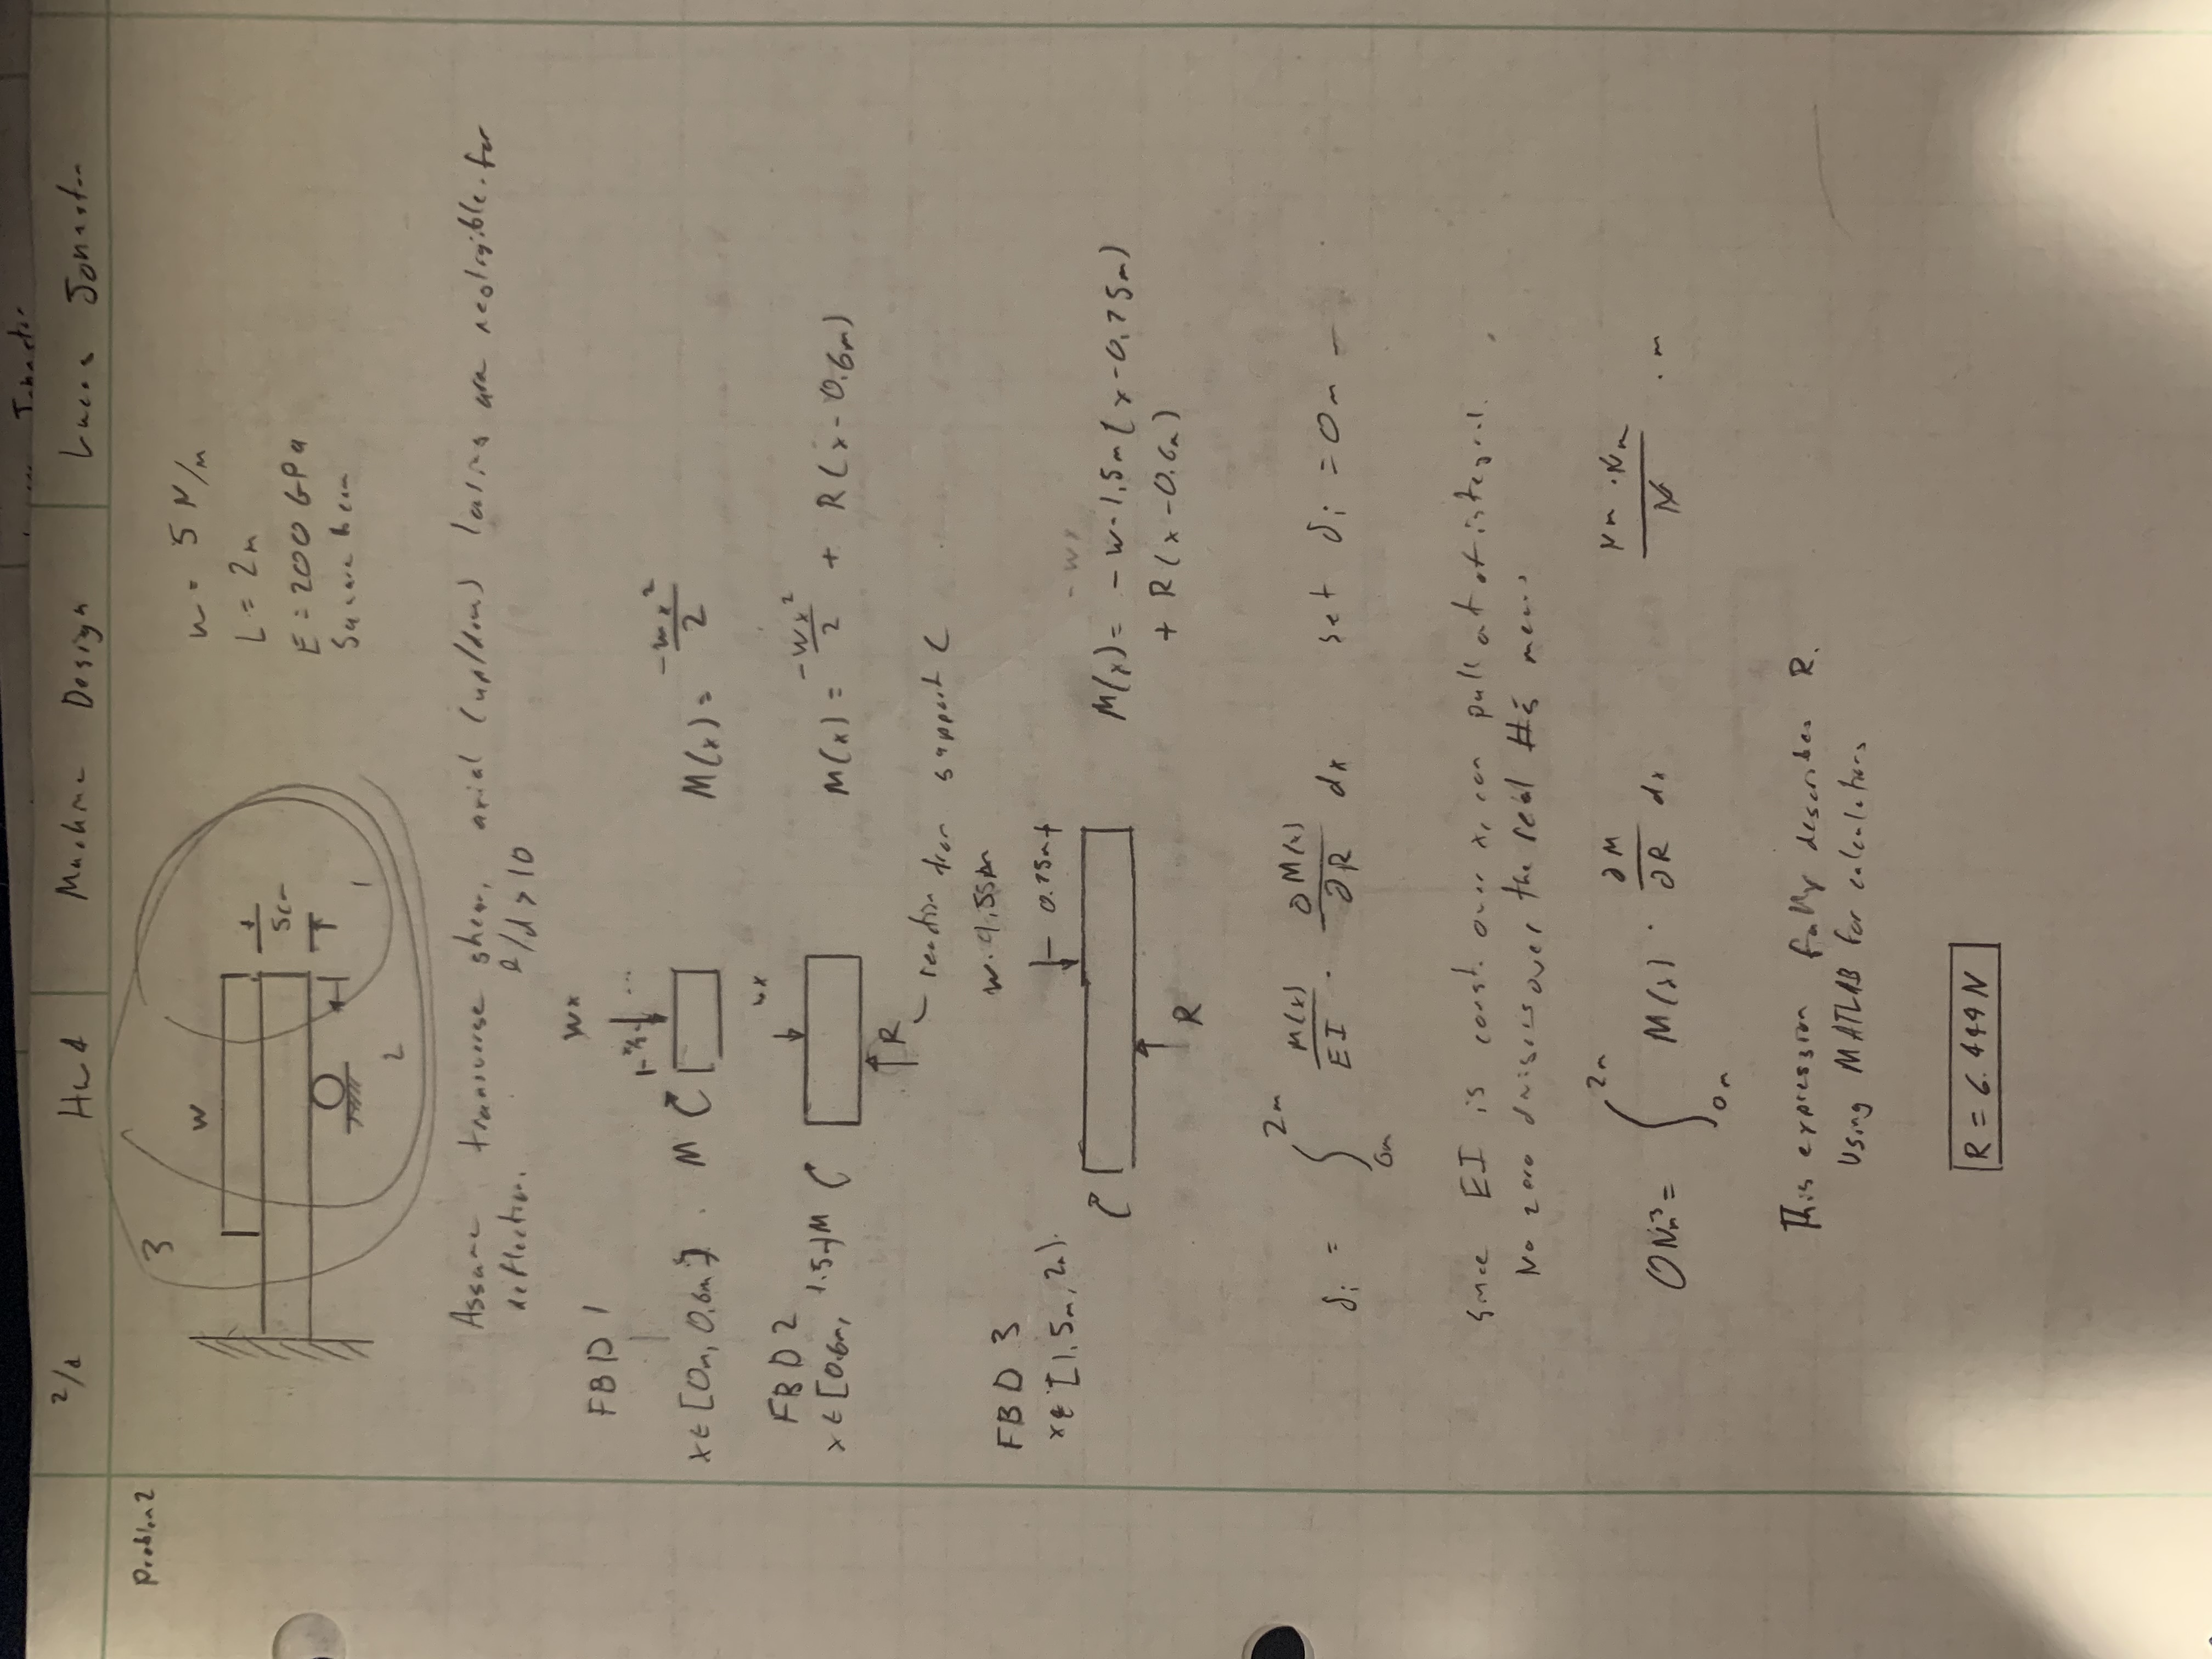 Johnston
2/4 HW 4 Machine Design Lucas Johnston
Problem 2
3
w
w = 5 N/m
L = 2m
5cm
E = 200 GPa
Square beam
1
2
Assume transverse shear, axial (up/down) loading are negligible for
deflection. l/d > 10
FBD 1
wx
x/2
x ∈ [0m, 0.6m] M
M(x) = -wx²/2
FBD 2
wx
x ∈ [0.6m, 1.5m] M
M(x) = -wx²/2 + R(x - 0.6m)
R
reaction from support C
FBD 3
x ∈ [1.5m, 2m]
0.75m
-wx
M(x) = -w·1.5m(x-0.75m)
+ R(x-0.6m)
R
δi = ∫ 0m 2m M(x)/EI · ∂M(x)/∂R dx set δi = 0m
Since EI is const. over x, can pull out of integral.
No zero divisors over the real #s means
0Nm³ = ∫ 0m 2m M(x) · ∂M/∂R dx Nm·Nm/N · m
This expression fully describes R.
Using MATLAB for calculations
R = 6.444N